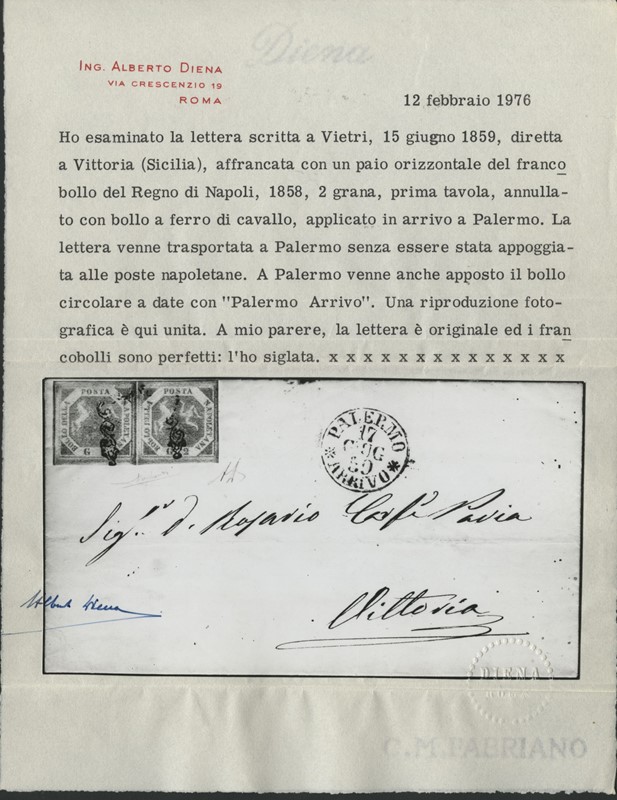 Diena
ING. ALBERTO DIENA
VIA CRESCENZIO 19
ROMA
12 febbraio 1976
Ho esaminato la lettera scritta a Vietri, 15 giugno 1859, diretta
a Vittoria (Sicilia), affrancata con un paio orizzontale del franco
bollo del Regno di Napoli, 1858, 2 grana, prima tavola, annulla-
to con bollo a ferro di cavallo, applicato in arrivo a Palermo. La
lettera venne trasportata a Palermo senza essere stata appoggia-
ta alle poste napoletane. A Palermo venne anche apposto il bollo
circolare a date con "Palermo Arrivo". Una riproduzione foto-
grafica è qui unita. A mio parere, la lettera è originale ed i fran
cobolli sono perfetti: l'ho siglata. x x x x x x x x x x x x x x
BOLLO DELLA POSTA NAPOLETANA G
BOLLO DELLA POSTA NAPOLETANA G 2
PALERMO
17
GIUG
59
ARRIVO
Sig.r D. Rosario
Pavia
Vittoria
Alberto Diena
DIENA
C.M.FABRIANO